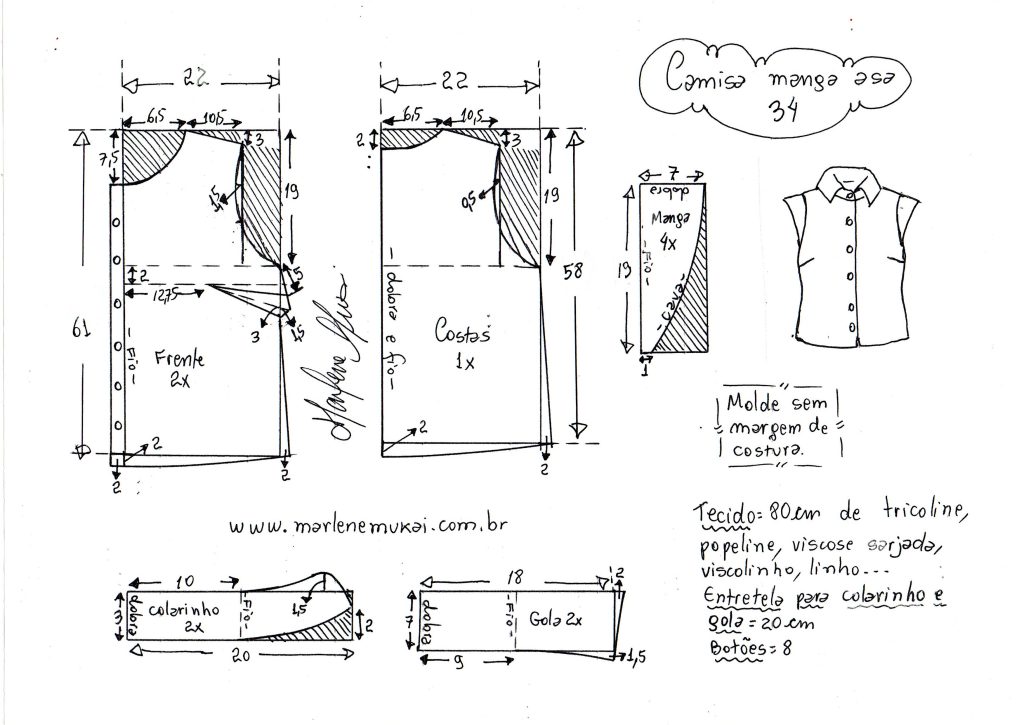 Camisa manga asa
34
22
6,5
10,5
7,5
3
19
1,5
2
12,75
5
3
1,5
61
Fio
Frente
2x
2
2
2
22
6,5
10,5
2
3
0,5
19
58
dobra e fio
Costas
1x
2
2
Marlene Mukai
7
dobra
Manga
4x
Fio
cava
19
1
Molde sem
margem de
costura.
www.marlenemukai.com.br
Tecido= 80cm de tricoline,
popeline, viscose sarjada,
viscolinho, linho...
Entretela para colarinho e
gola = 20 cm
Botões = 8
10
3
dobra
colarinho
2x
Fio
1,5
2
20
18
2
7
dobra
Fio
Gola 2x
9
1,5